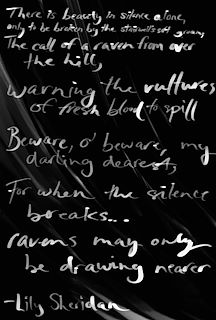 There is beauty in silence alone,
only to be broken by the stairwell's soft groans,
The call of a raven from over
the hills,
Warning the vultures
of fresh blood to spill
Beware, o' beware, my
darling dearest,
For when the silence
breaks...
ravens may only
be drawing nearer
-Lily Sheridan